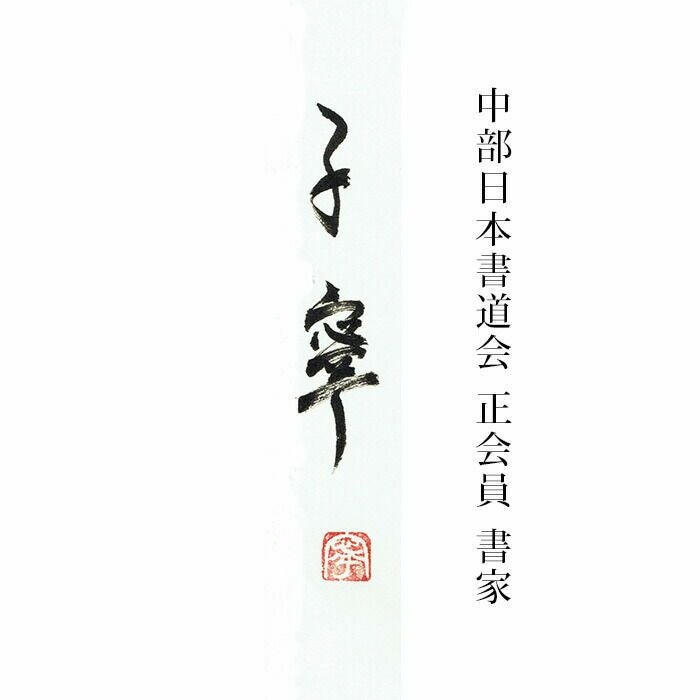 中部日本書道会 正会員 書家
子寧
寧